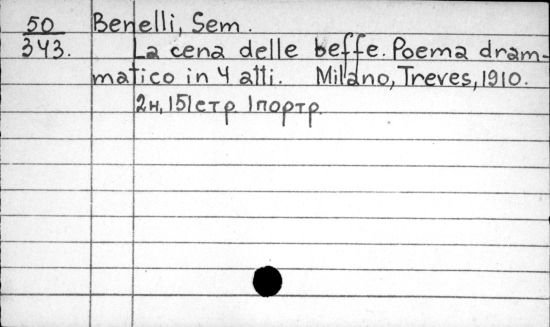 50 Benelli, Sem.
343. La cena delle beffe. Poema dram-
matico in 4 atti. Milano, Treves, 1910.
2н, 151стр 1портр.